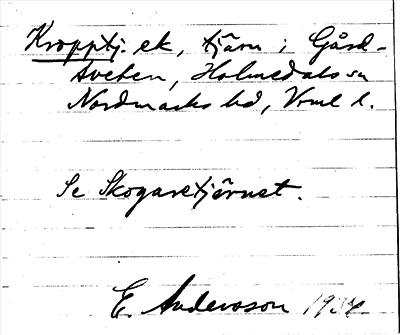 Kropptj. ek, tjärn i Gård-
sveten, Holmedals sn
Nordmarks hd, Vrml l.
Se Skogaretjärnet.
E. Andersson 1934